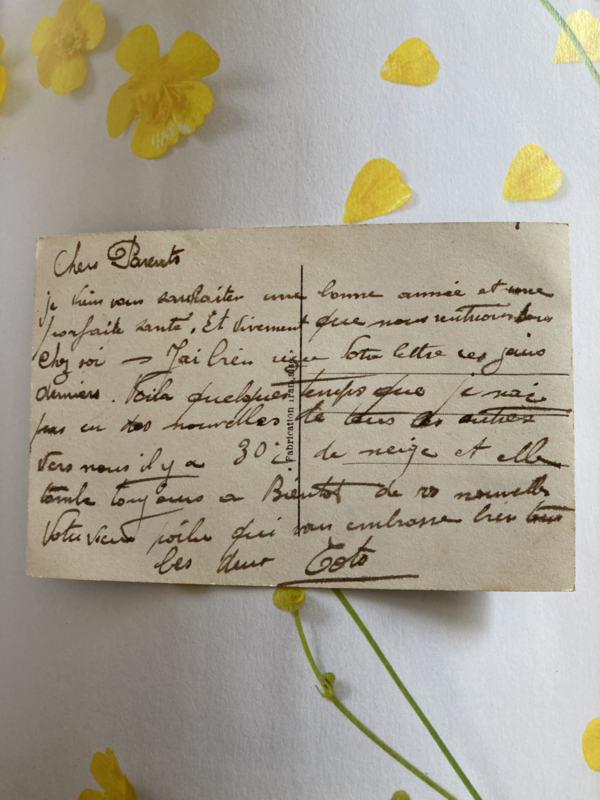 Chers Parents
je viens vous souhaiter une bonne année et une
parfaite santé. Et vivement que nous rentrions tous
chez soi — J'ai bien reçu votre lettre ces jours
derniers. Voilà quelques temps que je n'ai
pas eu des nouvelles de tous les autres
vers nous il y a 30 c de neige et elle
tombe toujours a Bientot de vos nouvelles
Votre vieux poilu qui vous embrasse bien tous
les deux Toto
Fabrication française